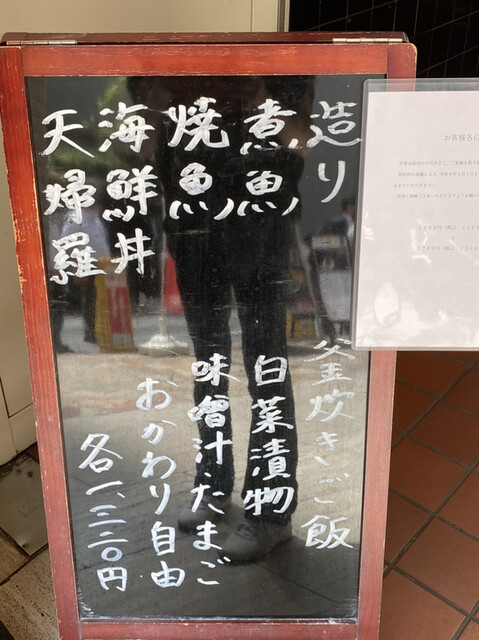 造り
煮魚
焼魚
海鮮丼
天婦羅
釜炊きご飯
白菜漬物
味噌汁、たまご
おかわり自由
各一、三二〇円